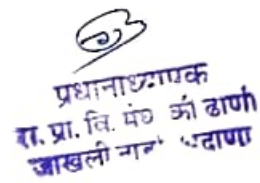 प्रधानाध्यापक
रा. प्रा. वि. मेघ की ढाणी
जाखली